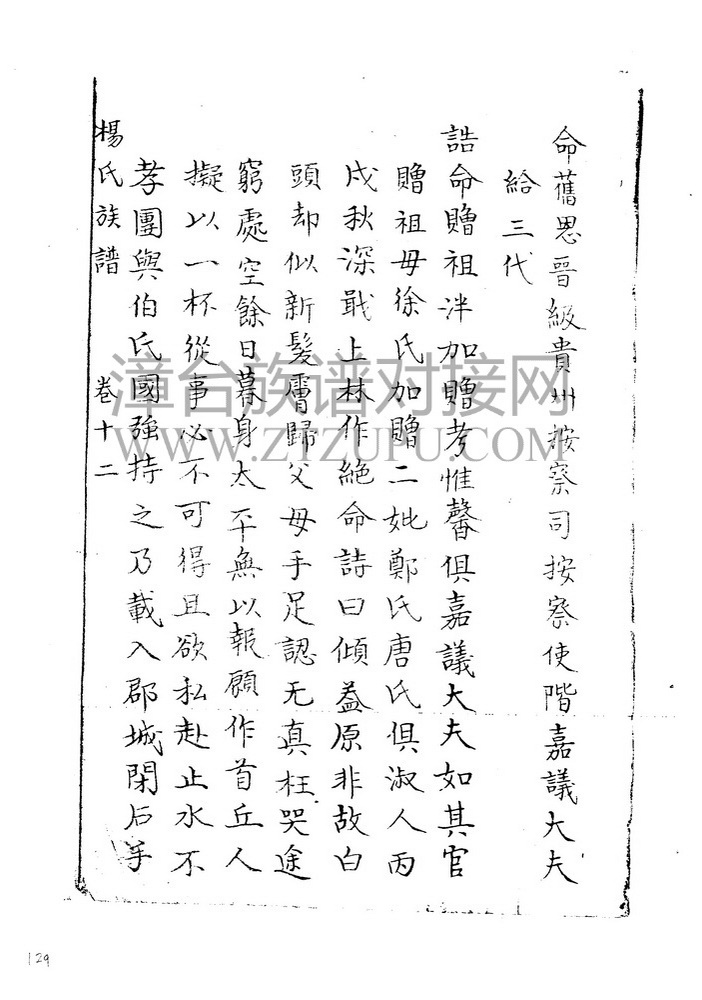 命舊恩晉級貴州按察司按察使階嘉議大夫
給三代
誥命贈祖泮加贈考惟馨俱嘉議大夫如其官
贈祖母徐氏加贈二妣鄭氏唐氏俱淑人丙
戍秋深戢上林作絕命詩曰傾蓋原非故白
頭却似新髮膚歸父母手足認无真枉哭途
窮處空餘日暮身太平無以報願作首丘人
擬以一杯從事必不可得且欲私赴止水不
孝團與伯氏國強持之乃載入郡城閉后
楊氏族譜 卷十二
漳台族谱对接网
WWW.ZTZUPU.COM
129